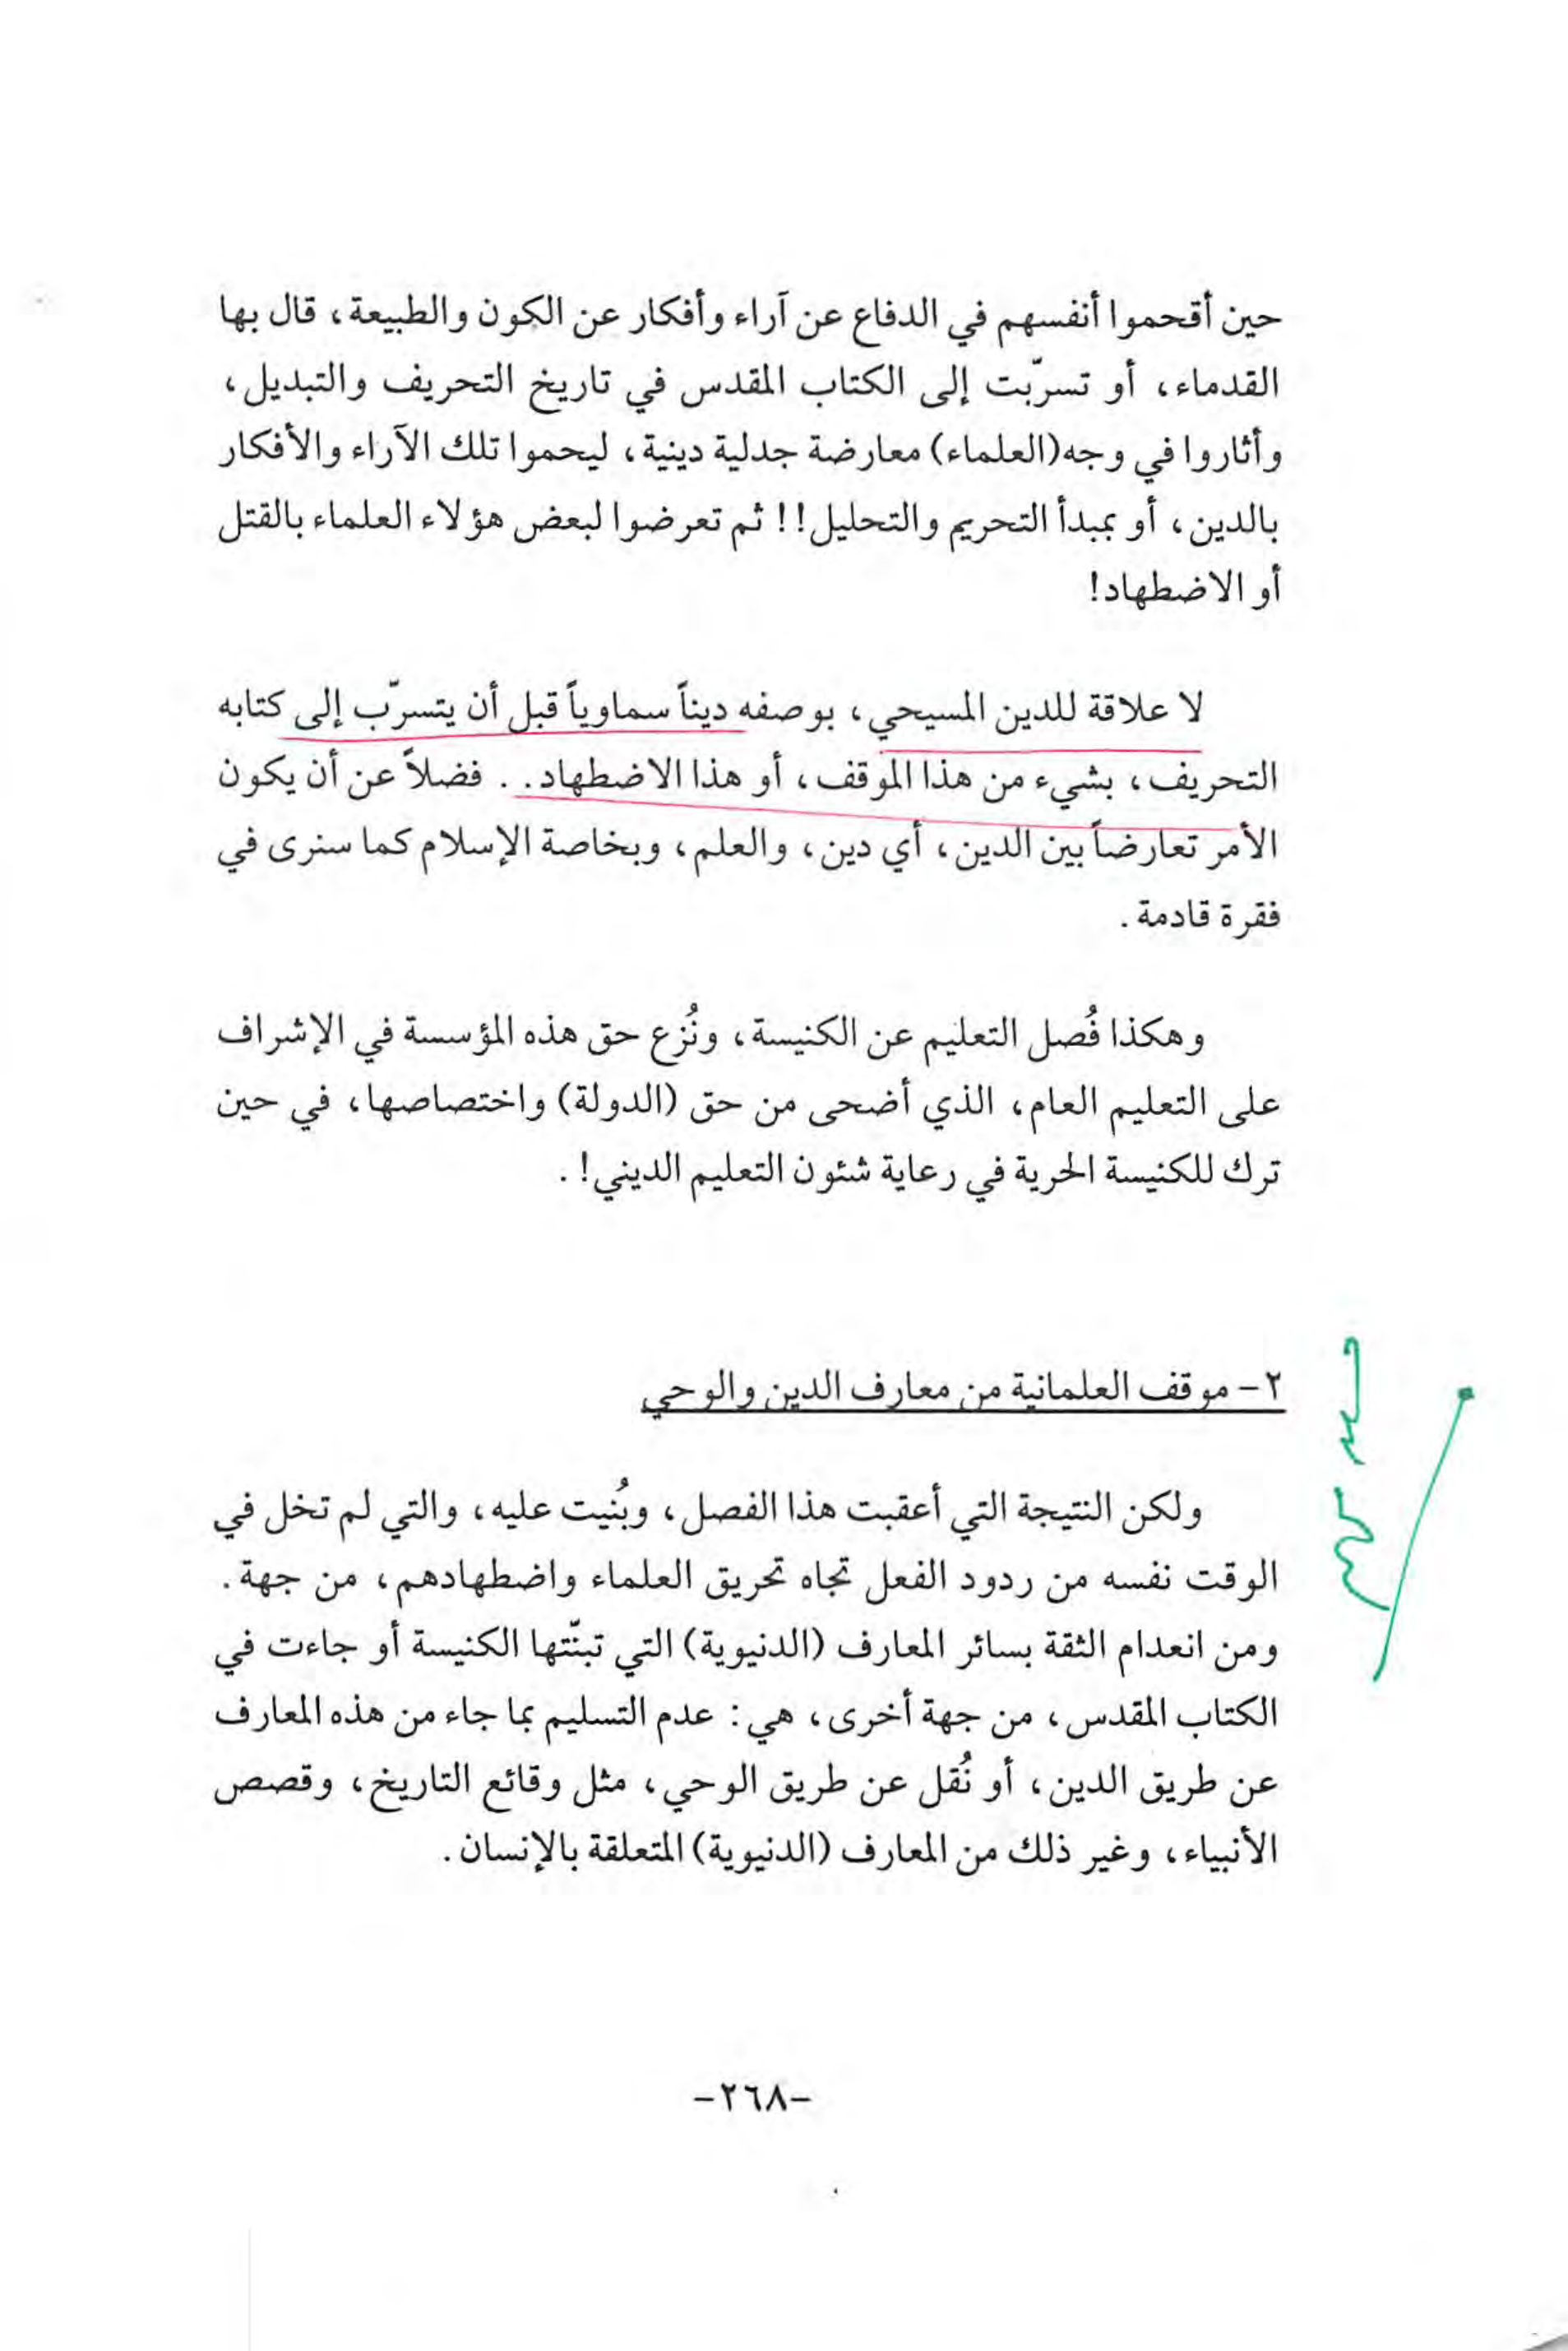 حين أقحموا أنفسهم في الدفاع عن آراء وأفكار عن الكون والطبيعة، قال بها
القدماء، أو تسرّبت إلى الكتاب المقدس في تاريخ التحريف والتبديل،
وأثاروا في وجه (العلماء) معارضة جدلية دينية، ليحموا تلك الآراء والأفكار
بالدين، أو بمبدأ التحريم والتحليل!! ثم تعرضوا لبعض هؤلاء العلماء بالقتل
أو الاضطهاد!
لا علاقة للدين المسيحي، بوصفه ديناً سماوياً قبل أن يتسرّب إلى كتابه
التحريف، بشيء من هذا الموقف، أو هذا الاضطهاد.. فضلاً عن أن يكون
الأمر تعارضاً بين الدين، أي دين، والعلم، وبخاصة الإسلام كما سنرى في
فقرة قادمة.
وهكذا فُصل التعليم عن الكنيسة، ونُزع حق هذه المؤسسة في الإشراف
على التعليم العام، الذي أضحى من حق (الدولة) واختصاصها، في حين
ترك للكنيسة الحرية في رعاية شئون التعليم الديني!.
٢- موقف العلمانية من معارف الدين والوحي
ولكن النتيجة التي أعقبت هذا الفصل، وبُنيت عليه، والتي لم تخل في
الوقت نفسه من ردود الفعل تجاه تحريق العلماء واضطهادهم، من جهة.
ومن انعدام الثقة بسائر المعارف (الدنيوية) التي تبنّتها الكنيسة أو جاءت في
الكتاب المقدس، من جهة أخرى، هي: عدم التسليم بما جاء من هذه المعارف
عن طريق الدين، أو نُقل عن طريق الوحي، مثل وقائع التاريخ، وقصص
الأنبياء، وغير ذلك من المعارف (الدنيوية) المتعلقة بالإنسان.
-٢٦٨-